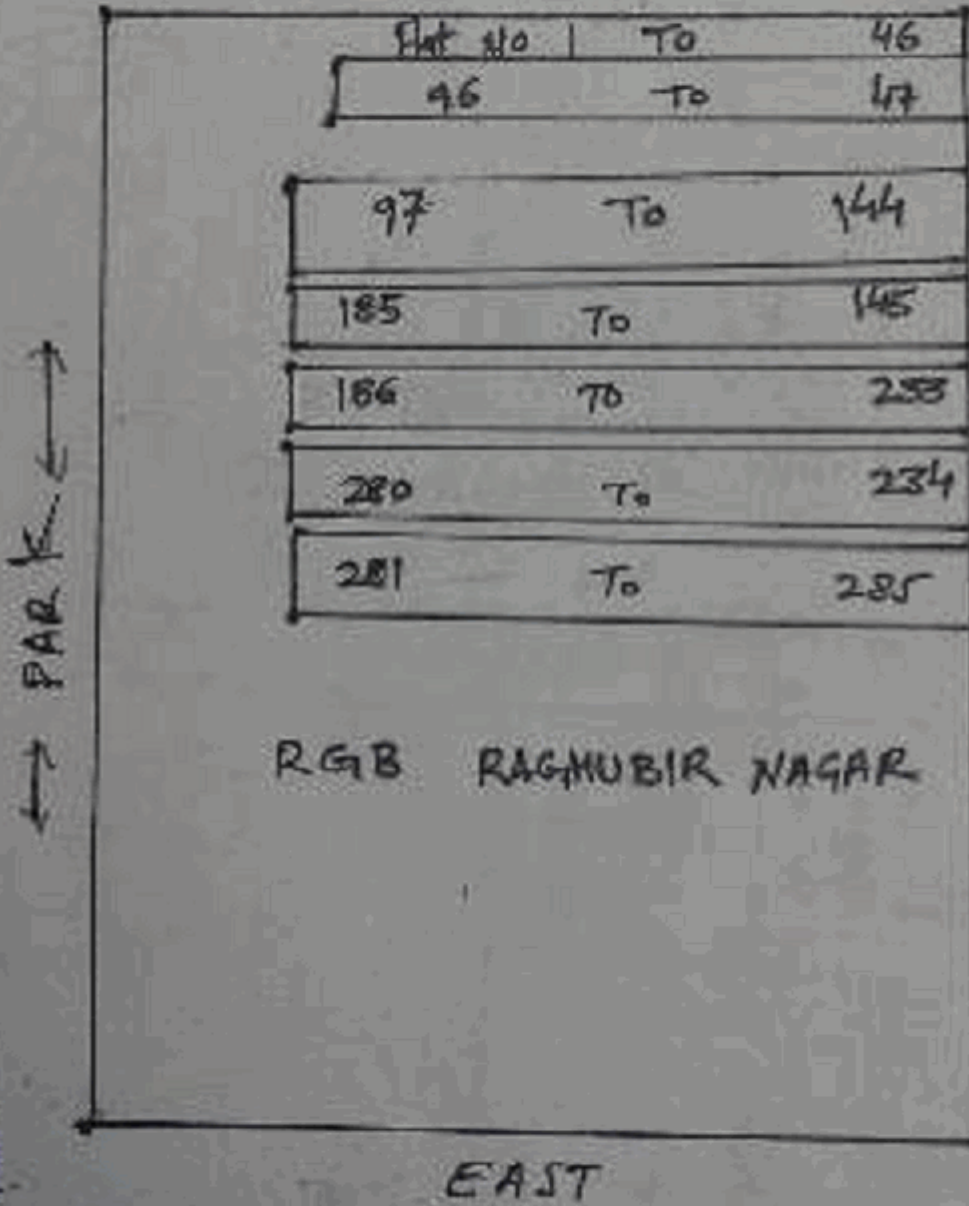 Flat No 1 To 46
96 To 47
97 To 144
185 To 145
186 To 233
280 To 234
281 To 285
PARK
RGB RAGHUBIR NAGAR
EAST